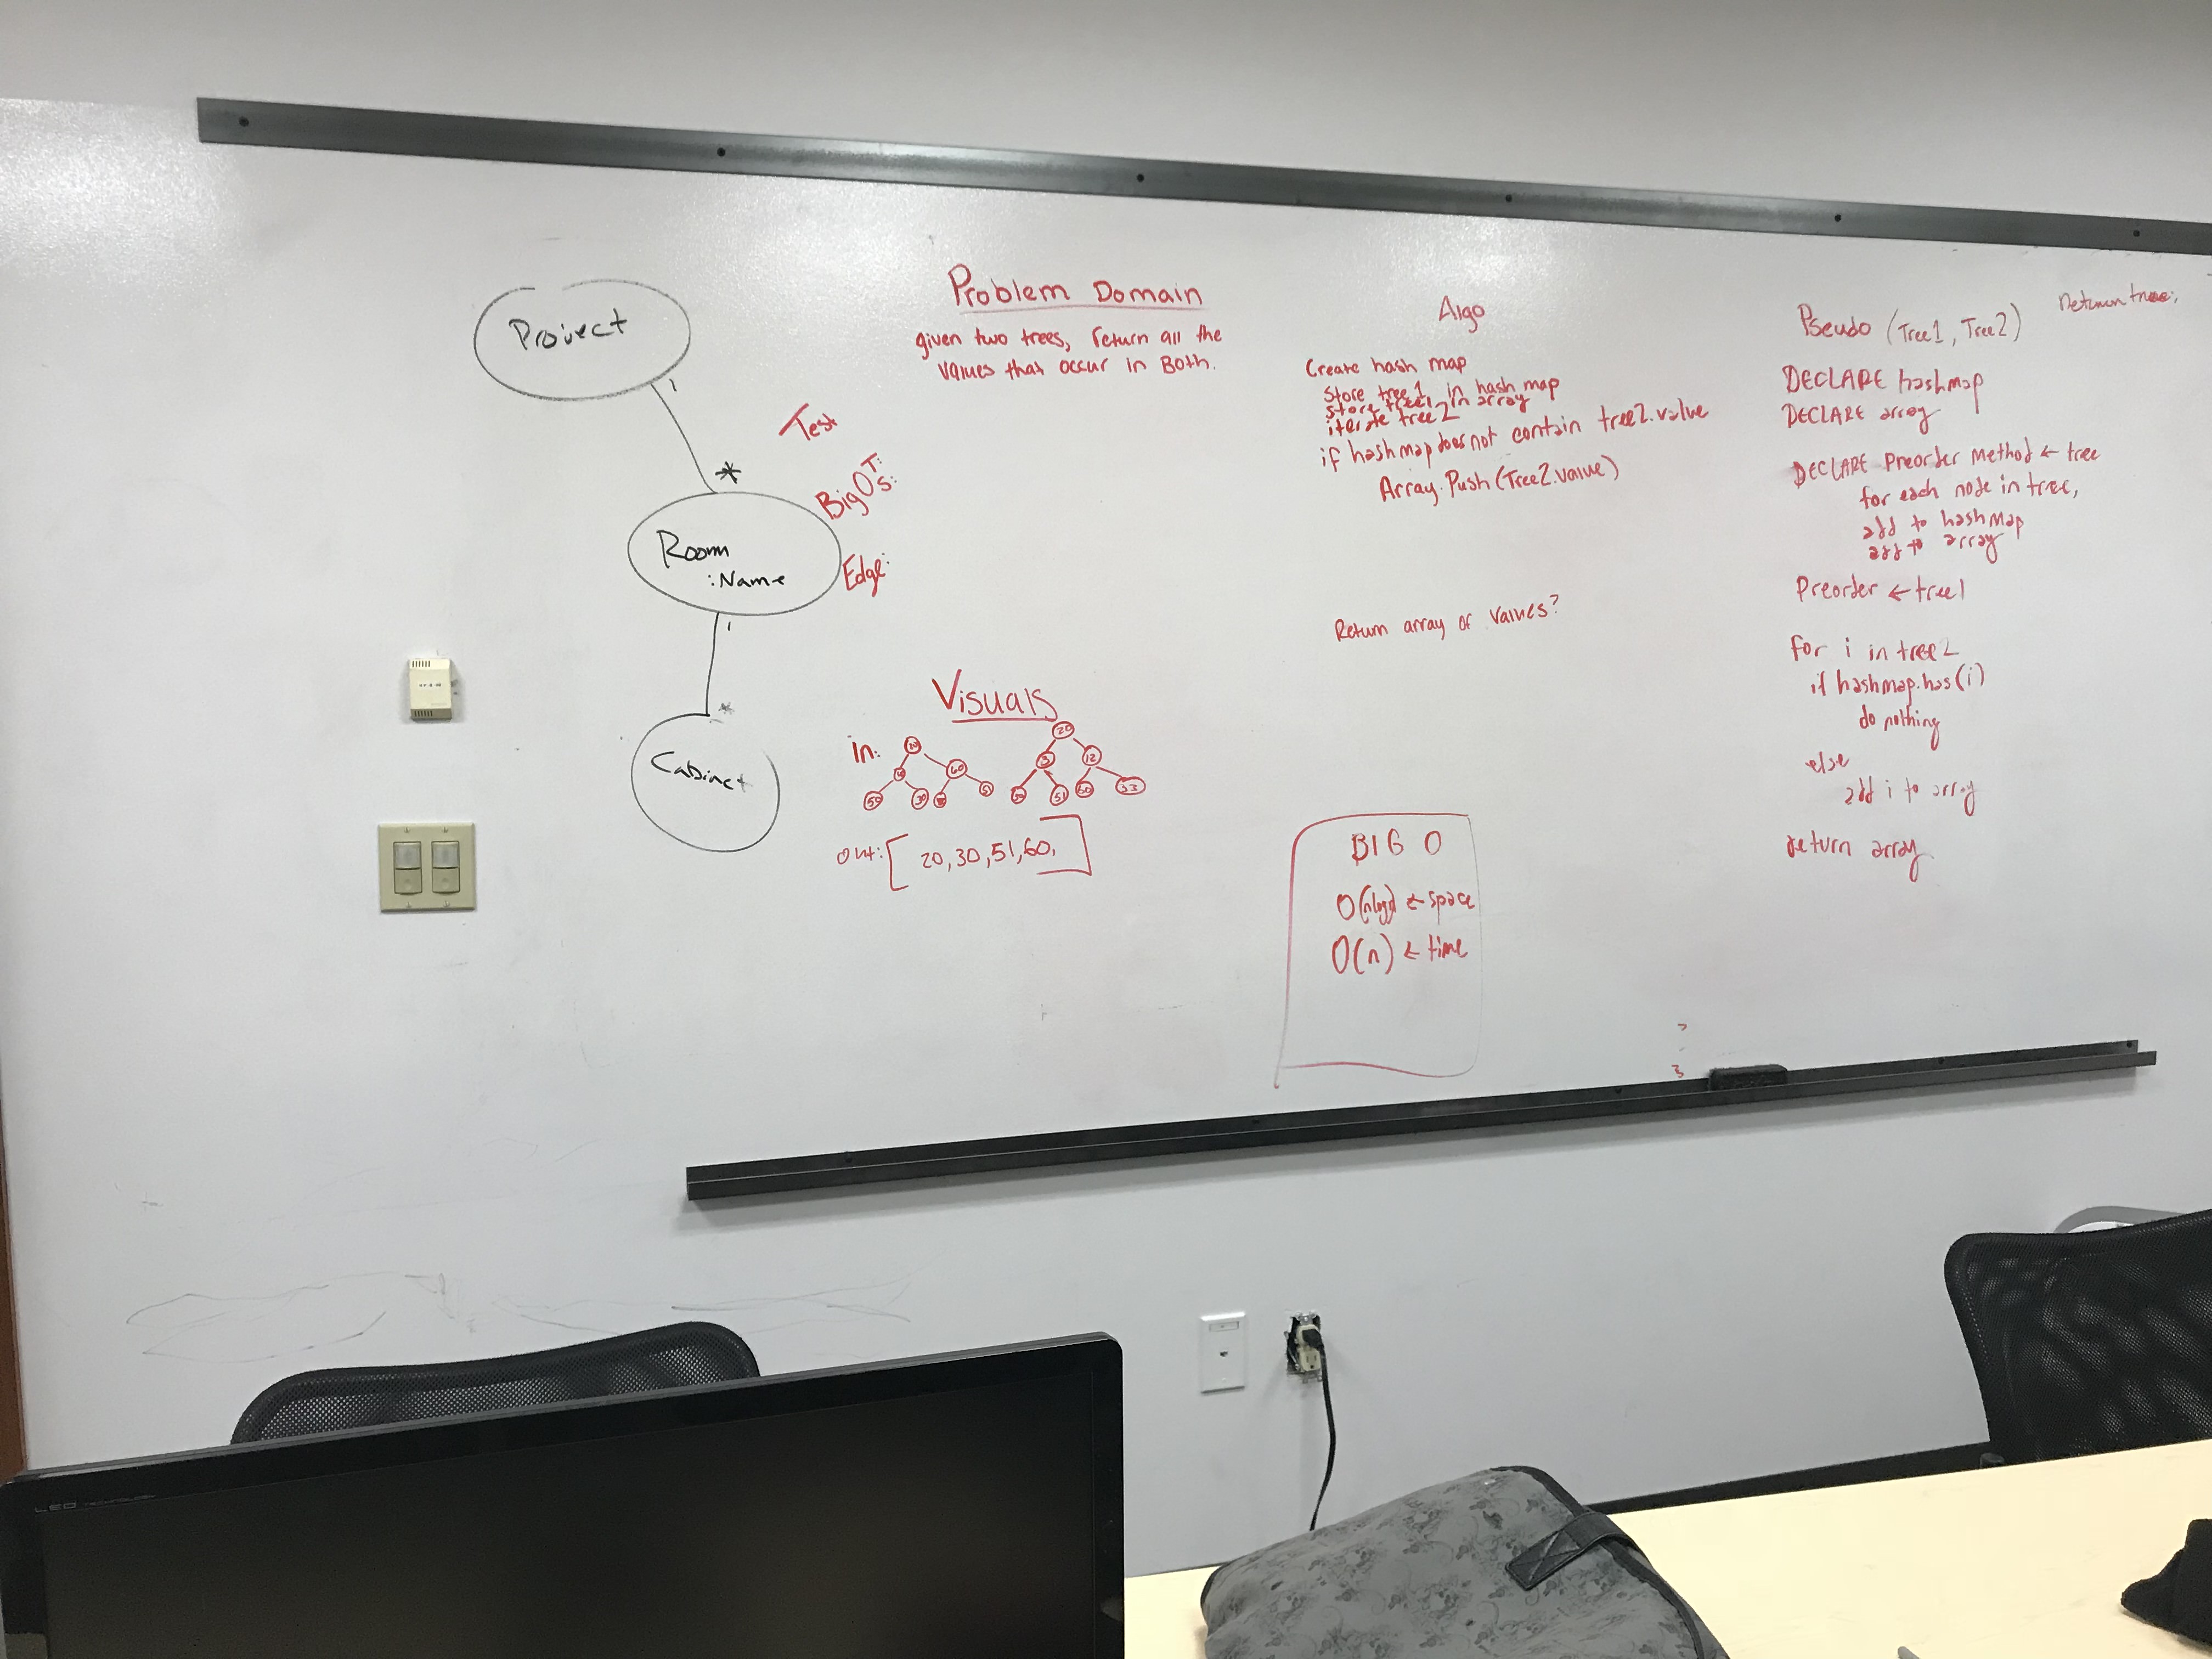 Project
1
*
Room
:Name
1
*
Cabinet
Test
Big O T:
S:
Edge:
Problem Domain
given two trees, return all the
values that occur in Both.
Visuals
in:
60
50
30
51
20
3
12
51
60
33
out: [ 20, 30, 51, 60, ]
Algo
Create hash map
Store tree1 in hash map
store tree1 in array
iterate tree2
if hashmap does not contain tree2.value
Array.Push(Tree2.value)
Return array of values?
BIG O
O(nlogn) ← space
O(n) ← time
Pseudo (Tree1, Tree2)
DECLARE hashmap
DECLARE array
DECLARE Preorder Method ← tree
for each node in tree,
add to hashmap
add to array
Preorder ← tree1
for i in tree2
if hashmap.has(i)
do nothing
else
add i to array
return array
3
LED